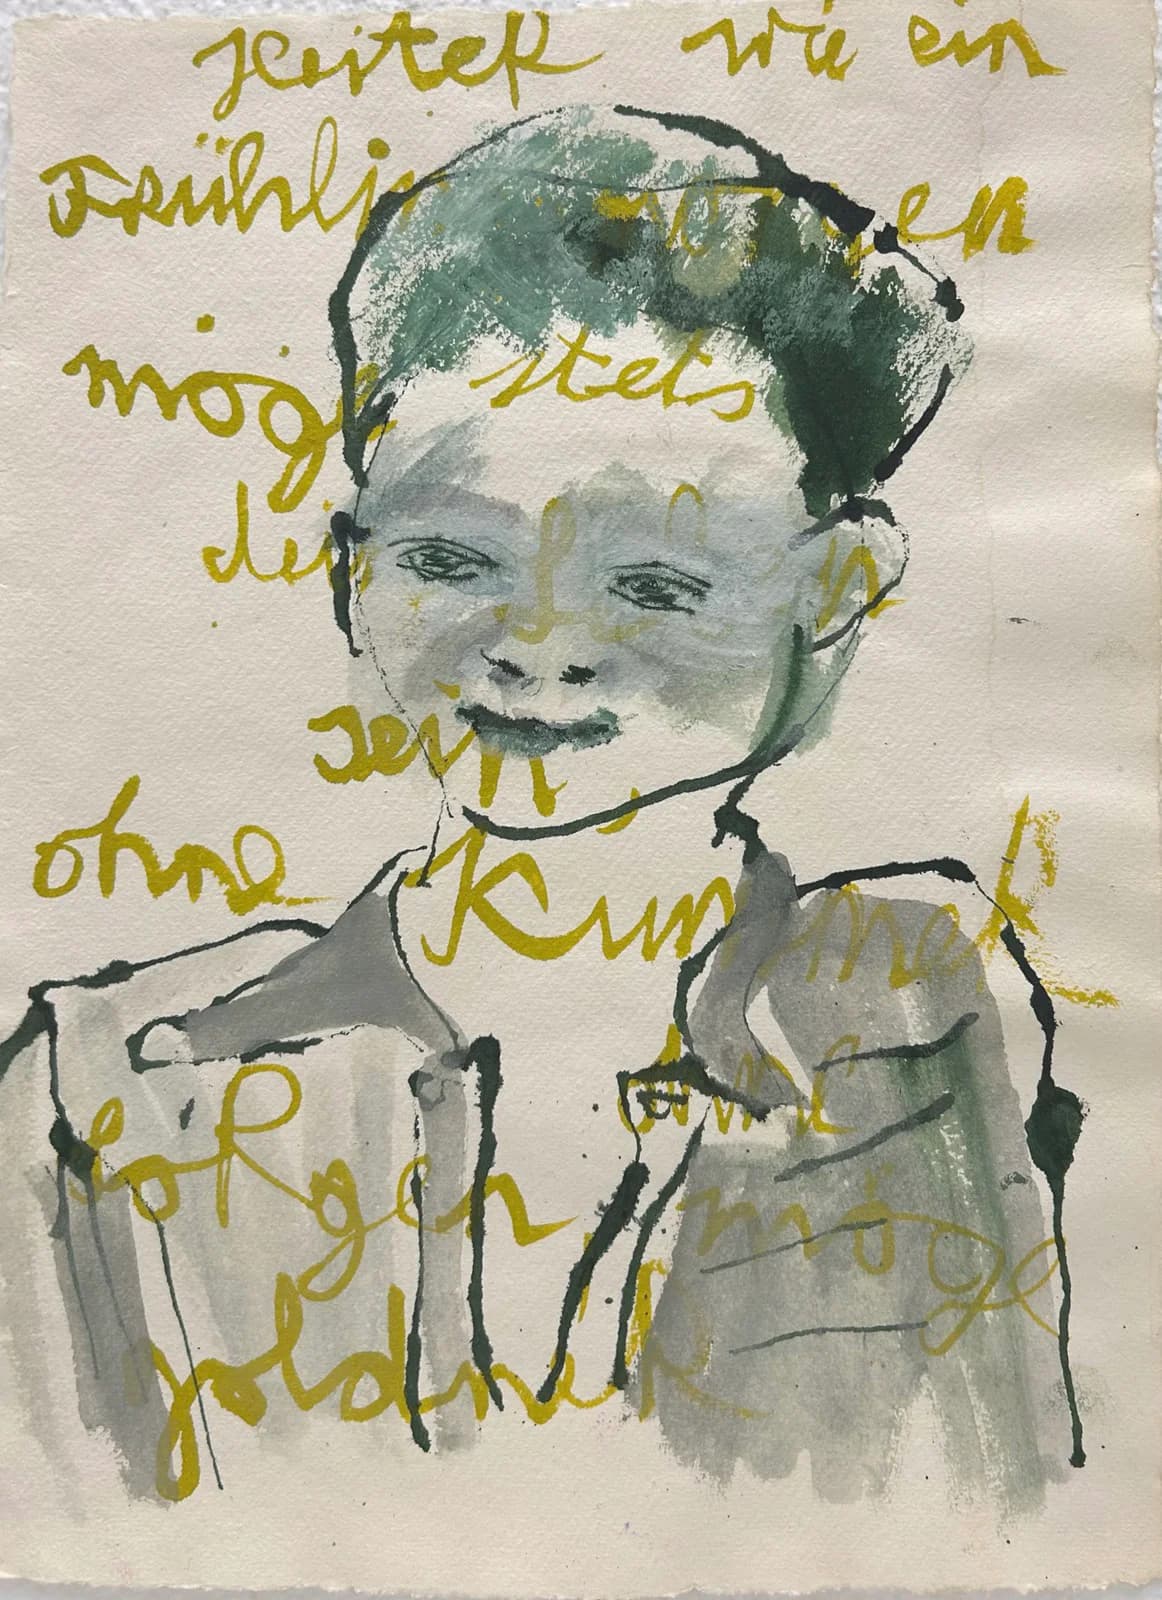 Heiter wie ein
Frühlingsmorgen
möge stets
dein Leben
sein,
ohne Kummer
ohne
Sorgen, möge
goldner